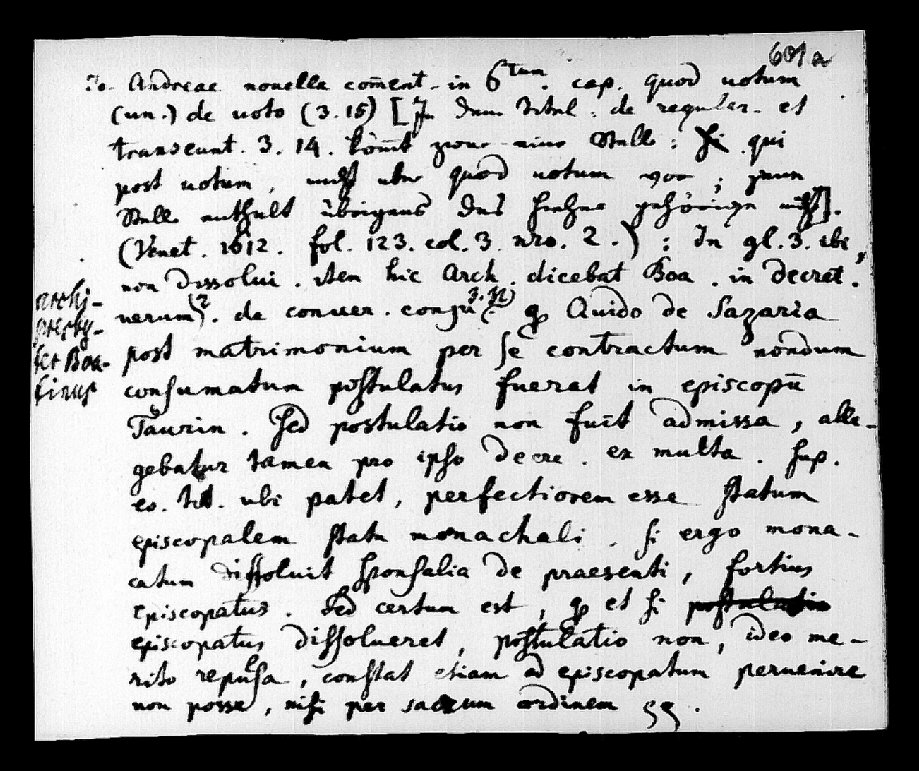 601a
Jo. Andreae nouella com̄ent. in 6tum. cap. quod uotum
(un.) de uoto (3.15) [In dem Titul: de regular. et
transeunt. 3. 14. kom̄t zwar eine Stelle: Si qui
post uotum, nicht aber quod uotum vor; jene
Stelle enthält übrigens das hieher gehörige nicht].
(Venet. 1612. fol. 123. col. 3. nro. 2.): In gl. 3. ibi,
non dissolui. item hic Arch. dicebat Boa. in decret.
uerum (2. de conuer. coniu (3. 32) qꝫ Guido de Sazaria
archi-
presby-
ter Boa-
tinus
post matrimonium per se contractum nondum
consumatum postulatus fuerat in episcopū
Taurin. Sed postulatio non fuit admissa, alle-
gebatur tamen pro ipso decre. ex multa. sup.
eo. tit. ubi patet, perfectiorem esse statum
episcopalem statu monachali. si ergo mona-
catum dissoluit sponsalia de praesenti, fortius
episcopatus. Sed certum est, qꝫ et si postulatio
episcopatus dissolueret, postulatio non, ideo me-
rito repulsa, constat etiam ad episcopatum peruenire
non posse, nisi per sacrum ordinem